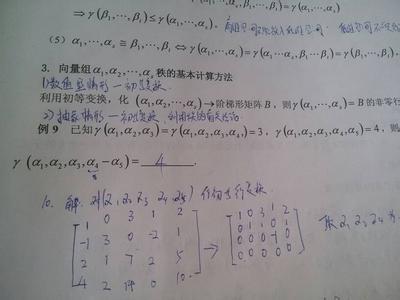 ⇒γ(β₁,⋯,β₁)≤γ(α₁,⋯,αₛ).
(5) α₁,⋯,αₛ≅β₁,⋯,βₜ⇔γ(α₁,⋯,αₛ)=γ(α₁⋯αₛ,β₁⋯βₜ)=γ(β₁,⋯
3. 向量组α₁,α₂,⋯,αₛ秩的基本计算方法
1)数值型情形—初等变换
利用初等变换，化(α₁,α₂,⋯,αₛ)→阶梯形矩阵B，则γ(α₁,⋯,αₛ)=B的非零行
2)抽象情形—初等变换，利用秩的有关结论
例9 已知γ(α₁,α₂,α₃)=γ(α₁,α₂,α₃,α₄)=3，γ(α₁,α₂,α₃,α₅)=4，则
γ(α₁,α₂,α₃,α₄-α₅)= 4 .
10. 解: 对(α₁ α₂ α₃ α₄ α₅)作初等行变换
1 0 3 1 2
-1 3 0 -2 1
2 1 7 2 5
4 2 14 0 10
→
1 0 3 1 2
0 1 1 0 1
0 0 0 1 0
0 0 0 0 0
取α₁,α₂,α₄为